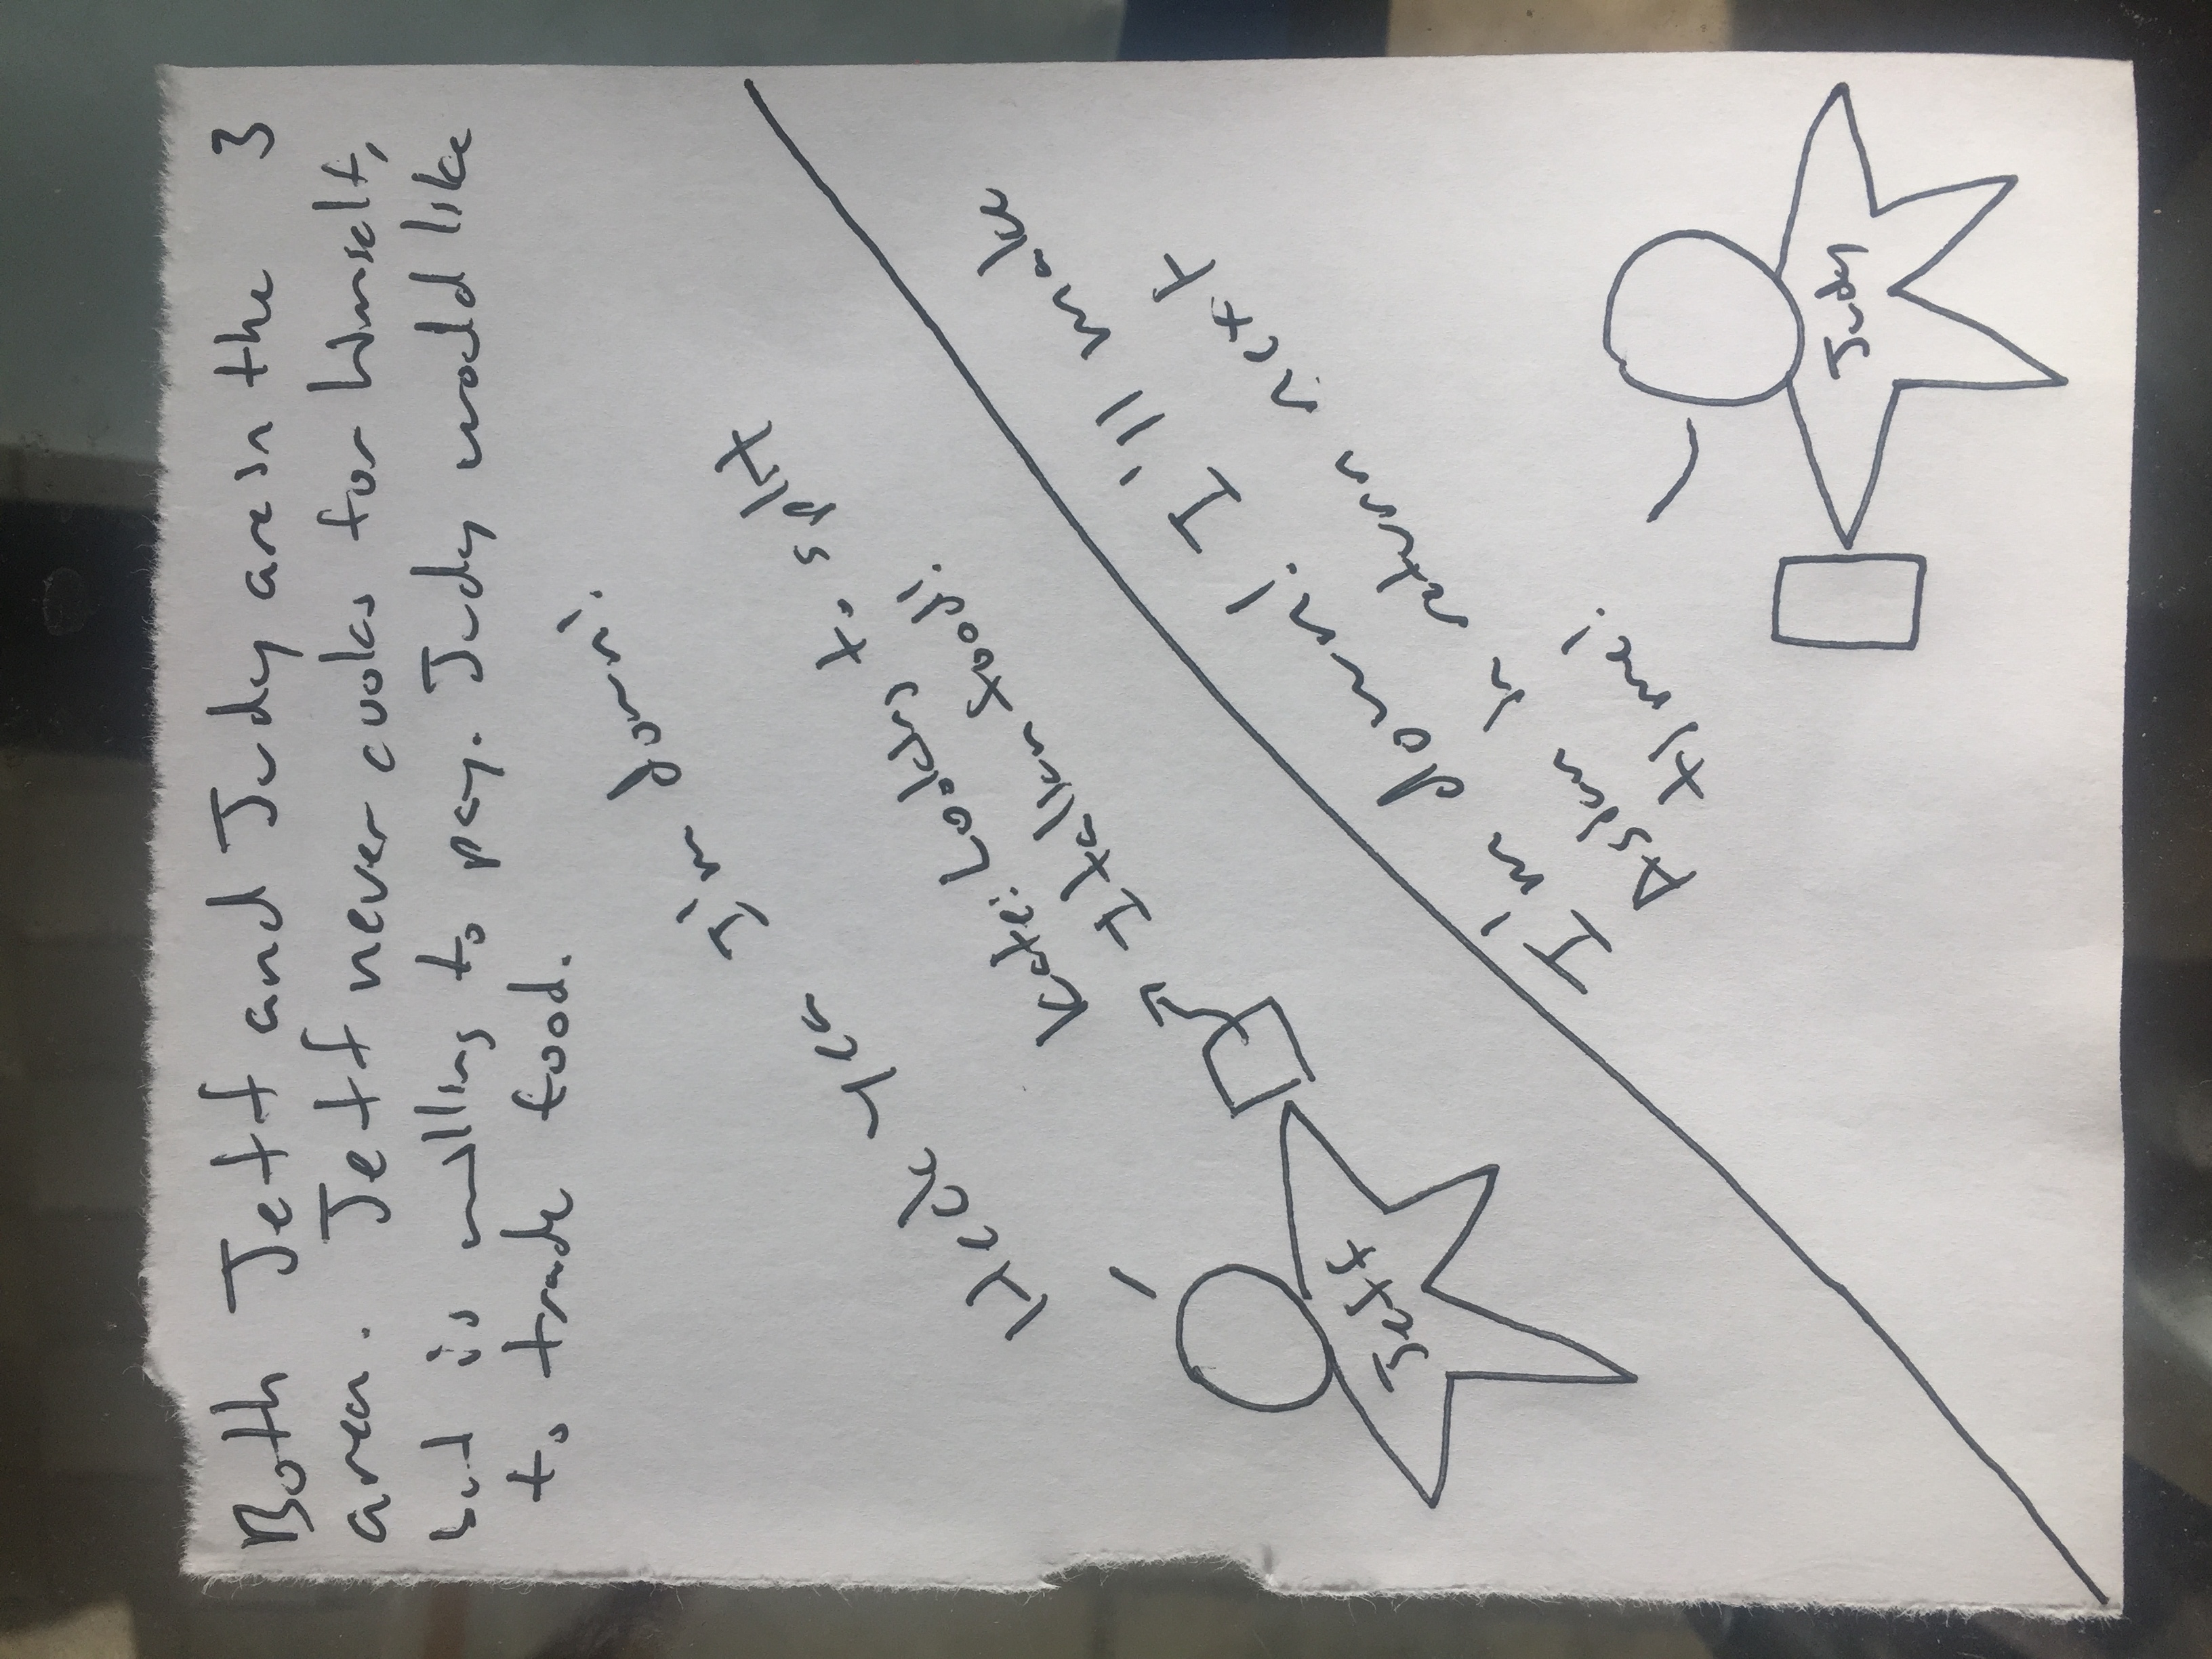 Both Jeff and Judy are in the 3
area. Jeff never cooks for himself,
but is willing to pay. Judy would like
to trade food.
Heck yea I'm down!
Kate: Looking to split
Italian food!
Jeff
I'm down! I'll make
Asian in return next
time!
Judy